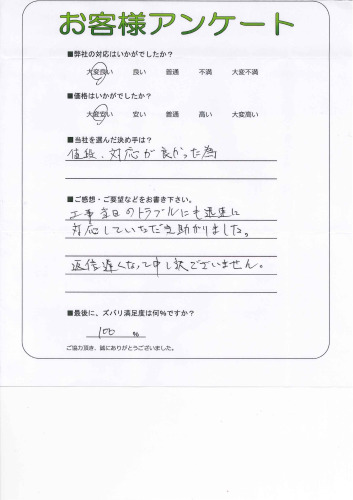 お客様アンケート
■弊社の対応はいかがでしたか？
大変良い 良い 普通 不満 大変不満
■価格はいかがでしたか？
大変安い 安い 普通 高い 大変高い
■当社を選んだ決め手は？
値段、対応が良かった為
■ご感想・ご要望などをお書き下さい。
工事当日のトラブルにも迅速に
対応していただき助かりました。
返信遅くなって申し訳ございません。
■最後に、ズバリ満足度は何%ですか？
100 %
ご協力頂き、誠にありがとうございました。